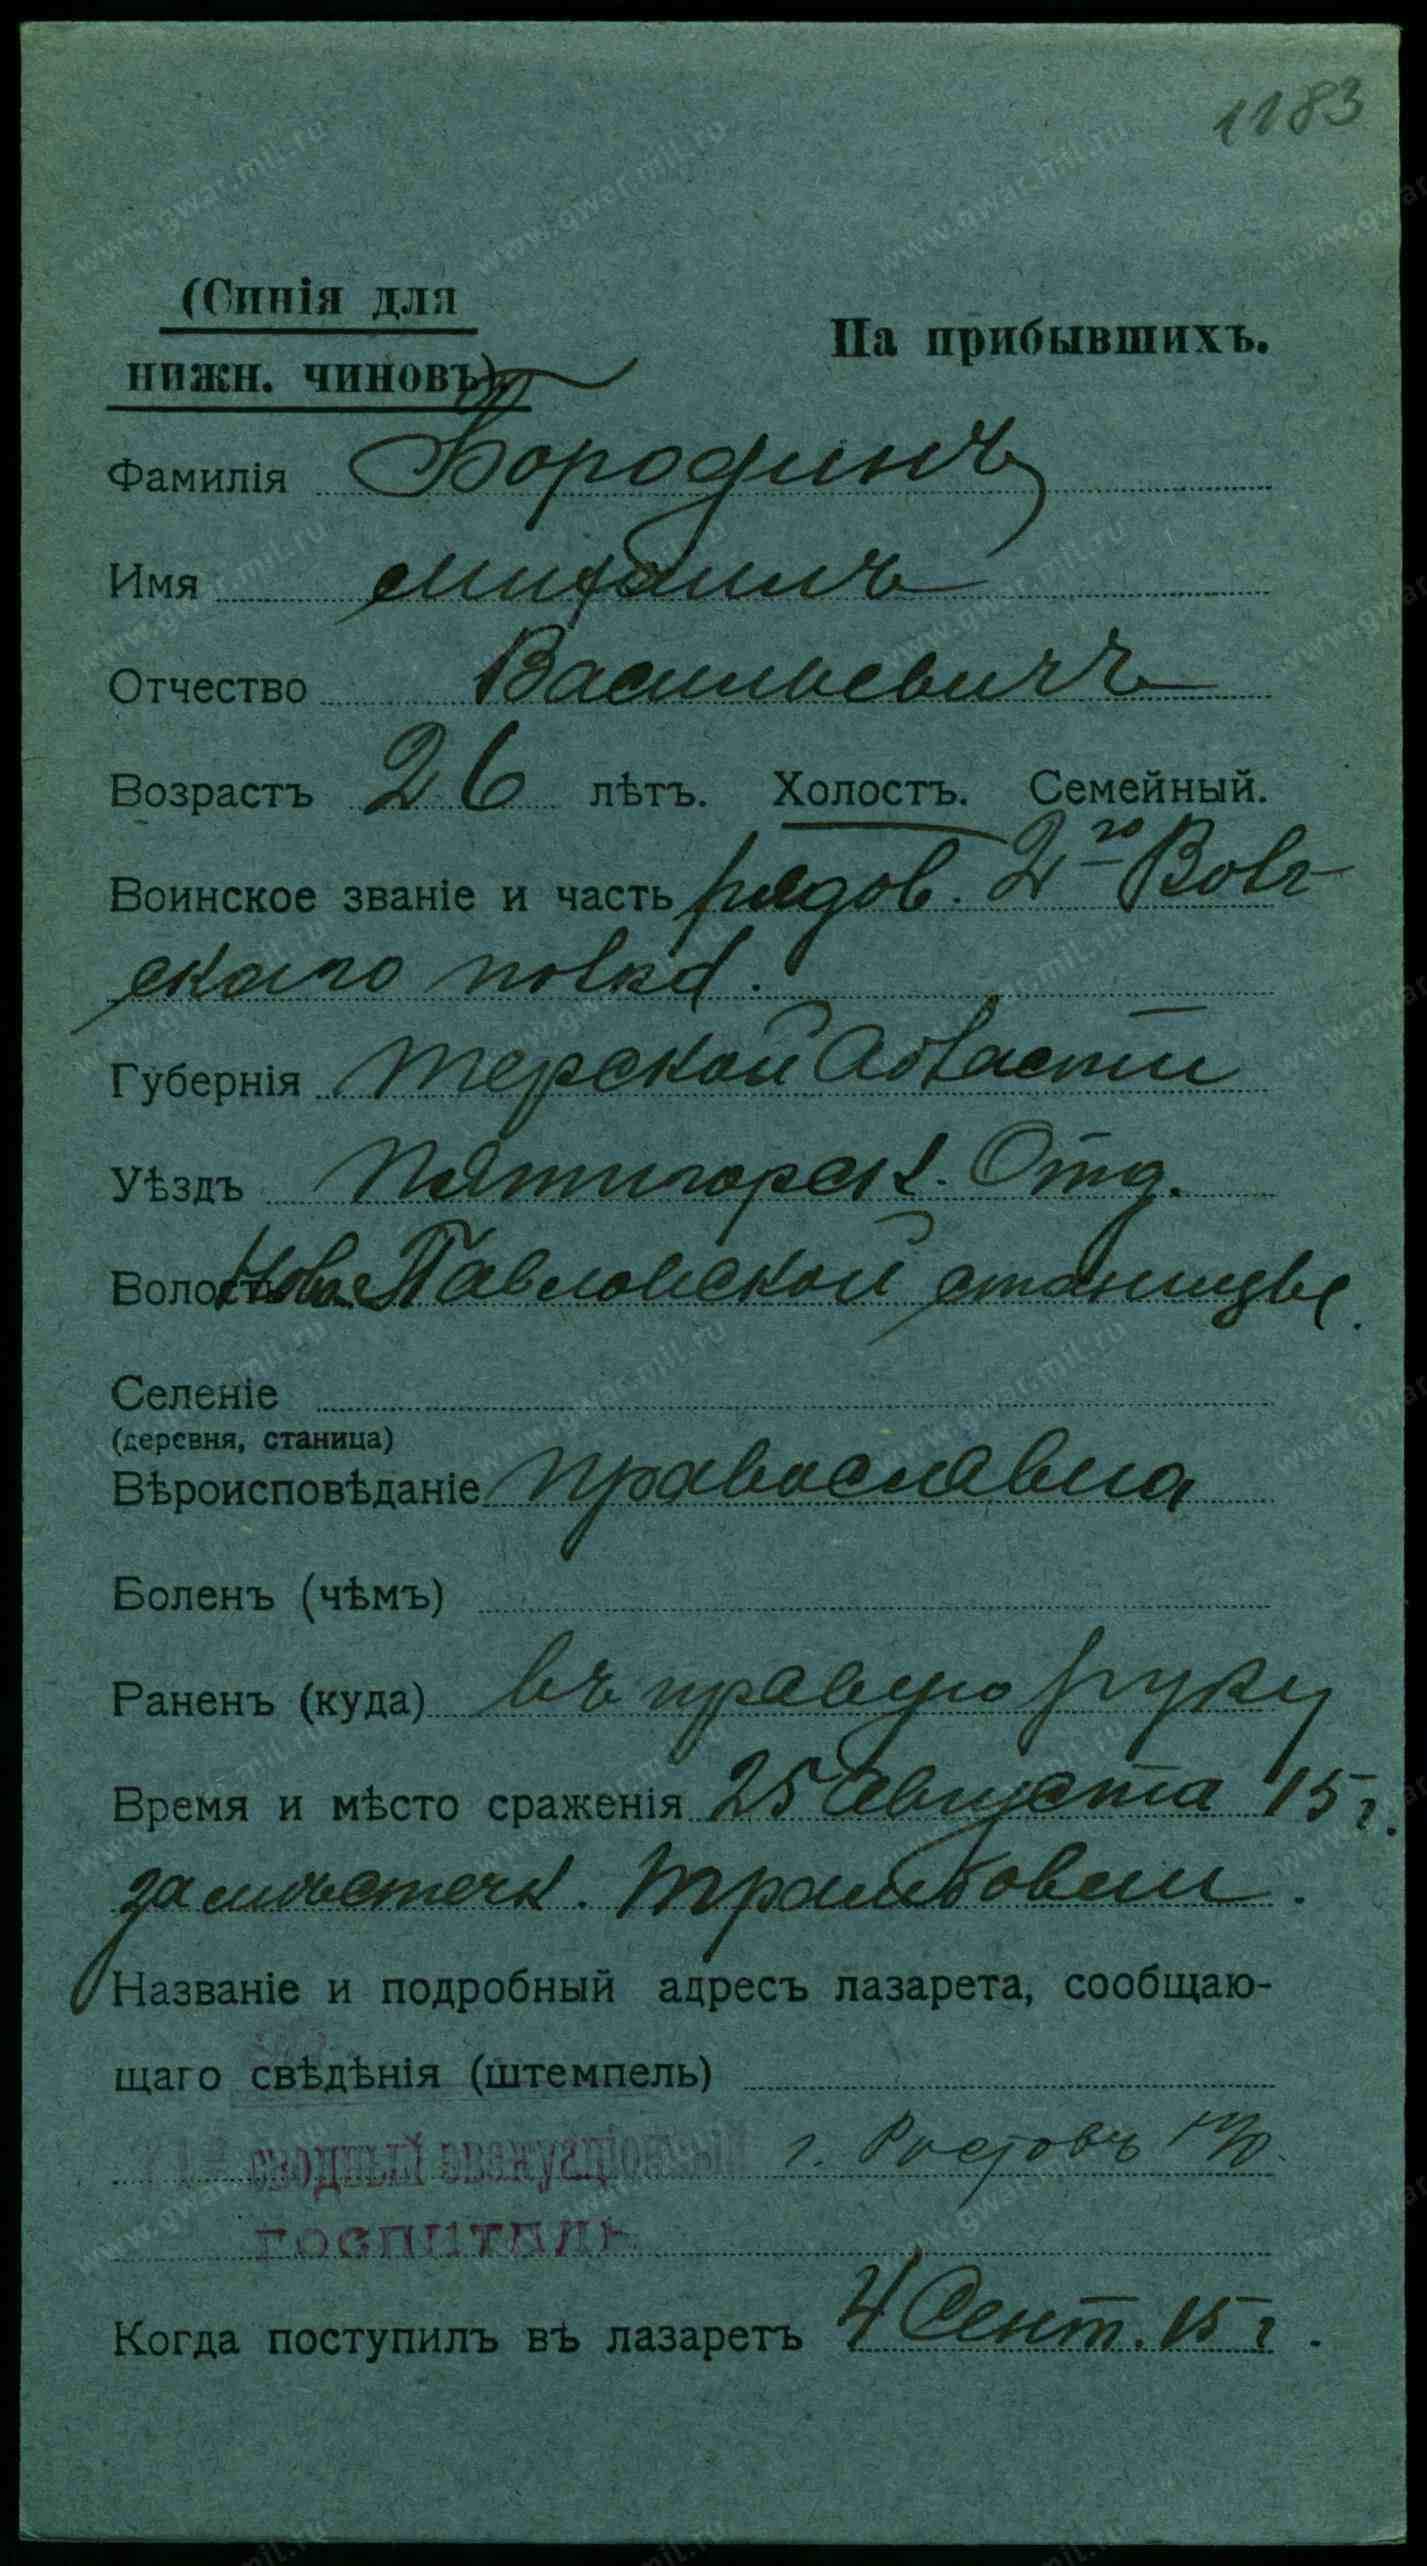 1183
(Синія для
нижн. чиновъ).
На прибывшихъ.
Фамилія Бородинъ
Имя Михаилъ
Отчество Васильевичъ
Возрастъ 26 лѣтъ. Холостъ. Семейный.
Воинское званіе и часть рядов. 2го Волг-
скаго полка.
Губернія Терской Области
Уѣздъ Пятигорск. Отд.
Волость Ново Павловской станицы.
Селеніе
(деревня, станица)
Вѣроисповѣданіе православна
Боленъ (чѣмъ)
Раненъ (куда) въ правую руку
Время и мѣсто сраженія 25 Августа 15 г.
за мѣстечк.
Названіе и подробный адресъ лазарета, сообщаю-
щаго свѣдѣнія (штемпель)
сводный эвакуаціонный г. Ростовъ н/Д.
госпиталь
Когда поступилъ въ лазаретъ 4 Сент. 15 г.